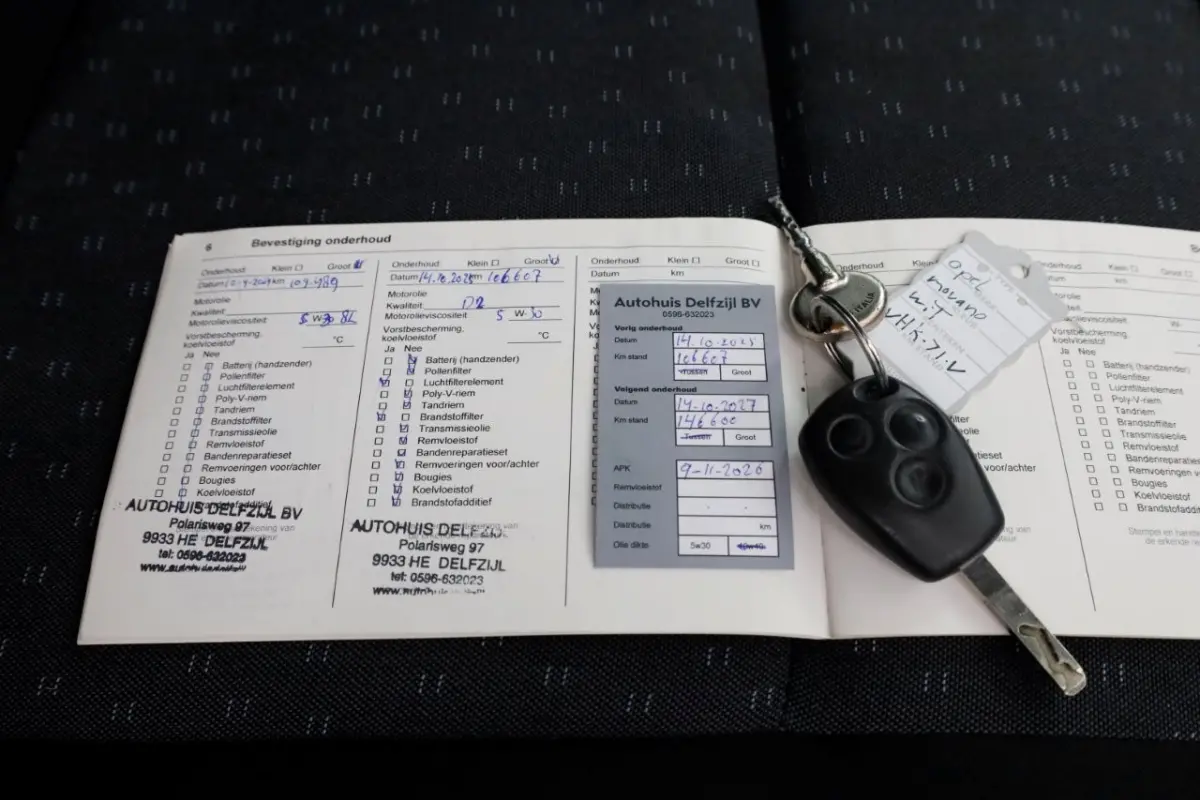 6 Bevestiging onderhoud
Onderhoud: Klein Groot
Datum km
Motorolie
Kwaliteit
Motorolieviscositeit 5 W-30
Vorstbescherming,
koelvloeistof °C
Ja Nee
Batterij (handzender)
Pollenfilter
Luchtfilterelement
Poly-V-riem
Tandriem
Brandstoffilter
Transmissieolie
Remvloeistof
Bandenreparatieset
Remvoeringen voor/achter
Bougies
Koelvloeistof
AUTOHUIS DELFZIJL BV
Polarisweg 97
9933 HE DELFZIJL
tel: 0596-632023
Onderhoud: Klein Groot
Datum 14.10.2025 km 106607
Motorolie
Kwaliteit D2
Motorolieviscositeit 5 W-30
Vorstbescherming,
koelvloeistof °C
Ja Nee
Batterij (handzender)
Pollenfilter
Luchtfilterelement
Poly-V-riem
Tandriem
Brandstoffilter
Transmissieolie
Remvloeistof
Bandenreparatieset
Remvoeringen voor/achter
Bougies
Koelvloeistof
Brandstofadditief
AUTOHUIS
Polarisweg 97
9933 HE DELFZIJL
tel: 0596-632023
Onderhoud: Klein Groot
Datum km
Autohuis Delfzijl BV
0596-632023
Vorig onderhoud
Datum 14.10.2025
Km stand 106607
Tussen Groot
Volgend onderhoud
Datum 14-10-2027
Km stand 146600
Tussen Groot
APK 9-11-2026
Remvloeistof
Distributie
Distributie km
Olie dikte 5w30 10w40
Onderhoud:
ITALIA
opel
movano
wit
VHK-71-V
Klein
Batterij (handzender)
Pollenfilter
Luchtfilterelement
Poly-V-riem
Tandriem
Brandstoffilter
Transmissieolie
Remvloeistof
Bandenreparatieset
Remvoeringen
Bougies
Koelvloeistof
Stempel en
de erkende